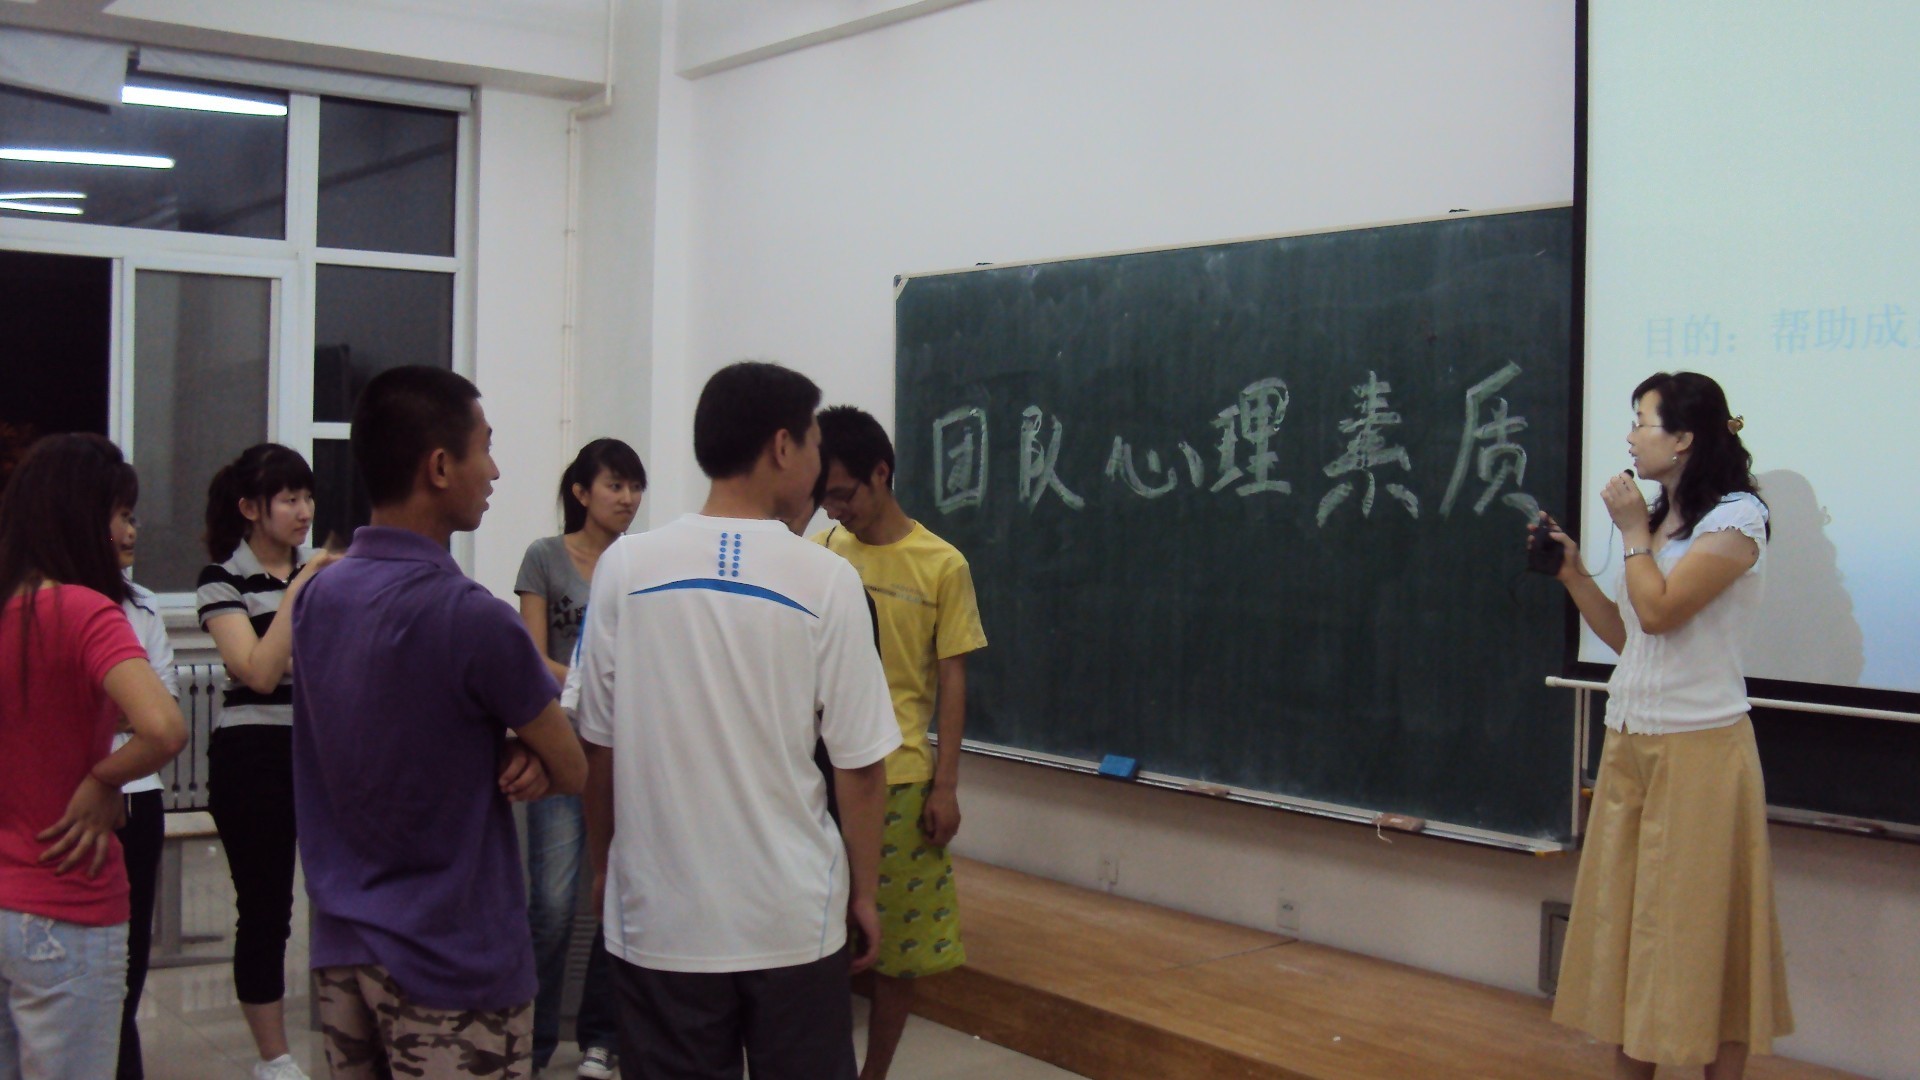 团队心理素质
目的：帮助成